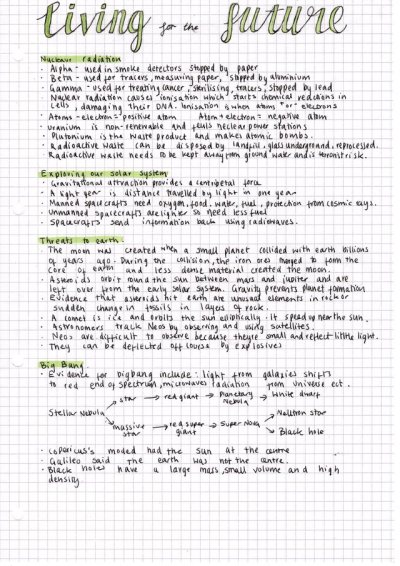 Living for the future
Nuclear radiation
· Alpha - used in smoke detectors stopped by paper
· Beta - used for tracers, measuring paper, stopped by aluminium
· Gamma - used for treating cancer, sterilising, tracers, stopped by lead
· Nuclear radiation causes ionisation which starts chemical reactions in
cells, damaging their DNA. Ionisation is when atoms + or - electrons
· Atoms - electron = positive atom Atom + electron = negative atom
· uranium is non-renewable and fuels nuclear power stations
· Plutonium is the waste product and makes atomic bombs.
· Radioactive waste can be disposed by landfill, glass underground, reprocessed.
· Radioactive waste needs to be kept away from ground water and is terrorist risk.
Exploring our solar system
· Gravitational attraction provides a centripetal force
· A light year is distance travelled by light in one year
· Manned spacecrafts need oxygen, food, water, fuel, protection from cosmic rays.
· Unmanned spacecrafts are lighter so need less fuel
· Spacecrafts send information back using radiowaves.
Threats to earth.
· The moon was created when a small planet collided with earth billions
of years ago. During the collision, the iron cores merged to form the
core of earth and less dense material created the moon.
· Asteroids orbit round the sun between mars and jupiter and are
left over from the early solar system. Gravity prevents planet formation
· Evidence that asteroids hit earth are unusual elements in rock or
sudden change in fossils in layers of rock.
· A comet is ice and orbits the sun eliptically. It speeds up near the sun.
· Astronomers track Neos by observing and using satellites.
· Neos are difficult to observe because they're small and reflect little light.
· They can be deflected off course by explosives
Big Bang
· Evidence for bigbang include: light from galaxies shifts
to red end of spectrum, microwaves radiation from universe ect.
star → red giant → Planetary Nebula → White dwarf
Stellar Nebula
massive star → red super giant → Super Nova
Neutron star
Black hole
· Copernicus's model had the sun at the centre
· Galileo said the earth was not the centre.
· Black holes have a large mass, small volume and high
density.